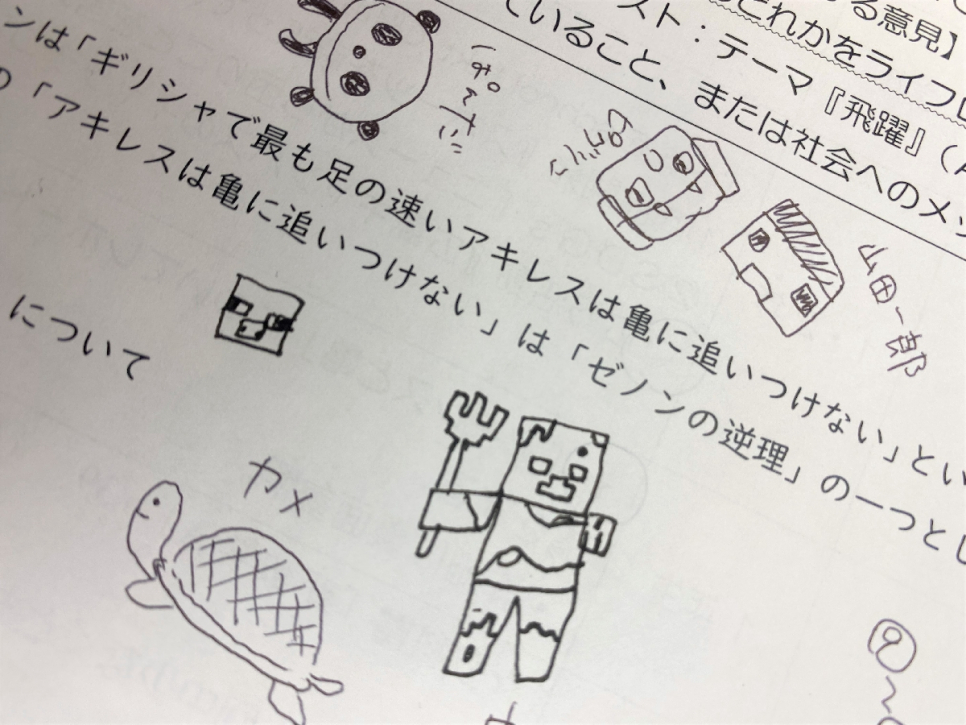 る意見】
どれかをライフレ
スト：テーマ『飛躍』（
ていること、または社会へのメッ
ンは「ギリシャで最も足の速いアキレスは亀に追いつけない」とい
の「アキレスは亀に追いつけない」は「ゼノンの逆理」の一つとし
について
山田一郎
カメ